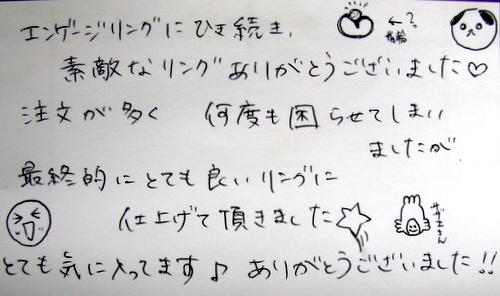 エンゲージリングにひき続き、
←?
指輪
素敵なリングありがとうございました♡
注文が多く 何度も困らせてしまい
ましたが
最終的にとても良いリングに
仕上げて頂きました☆
サザエさん
とても気に入ってます♪ ありがとうございました!!